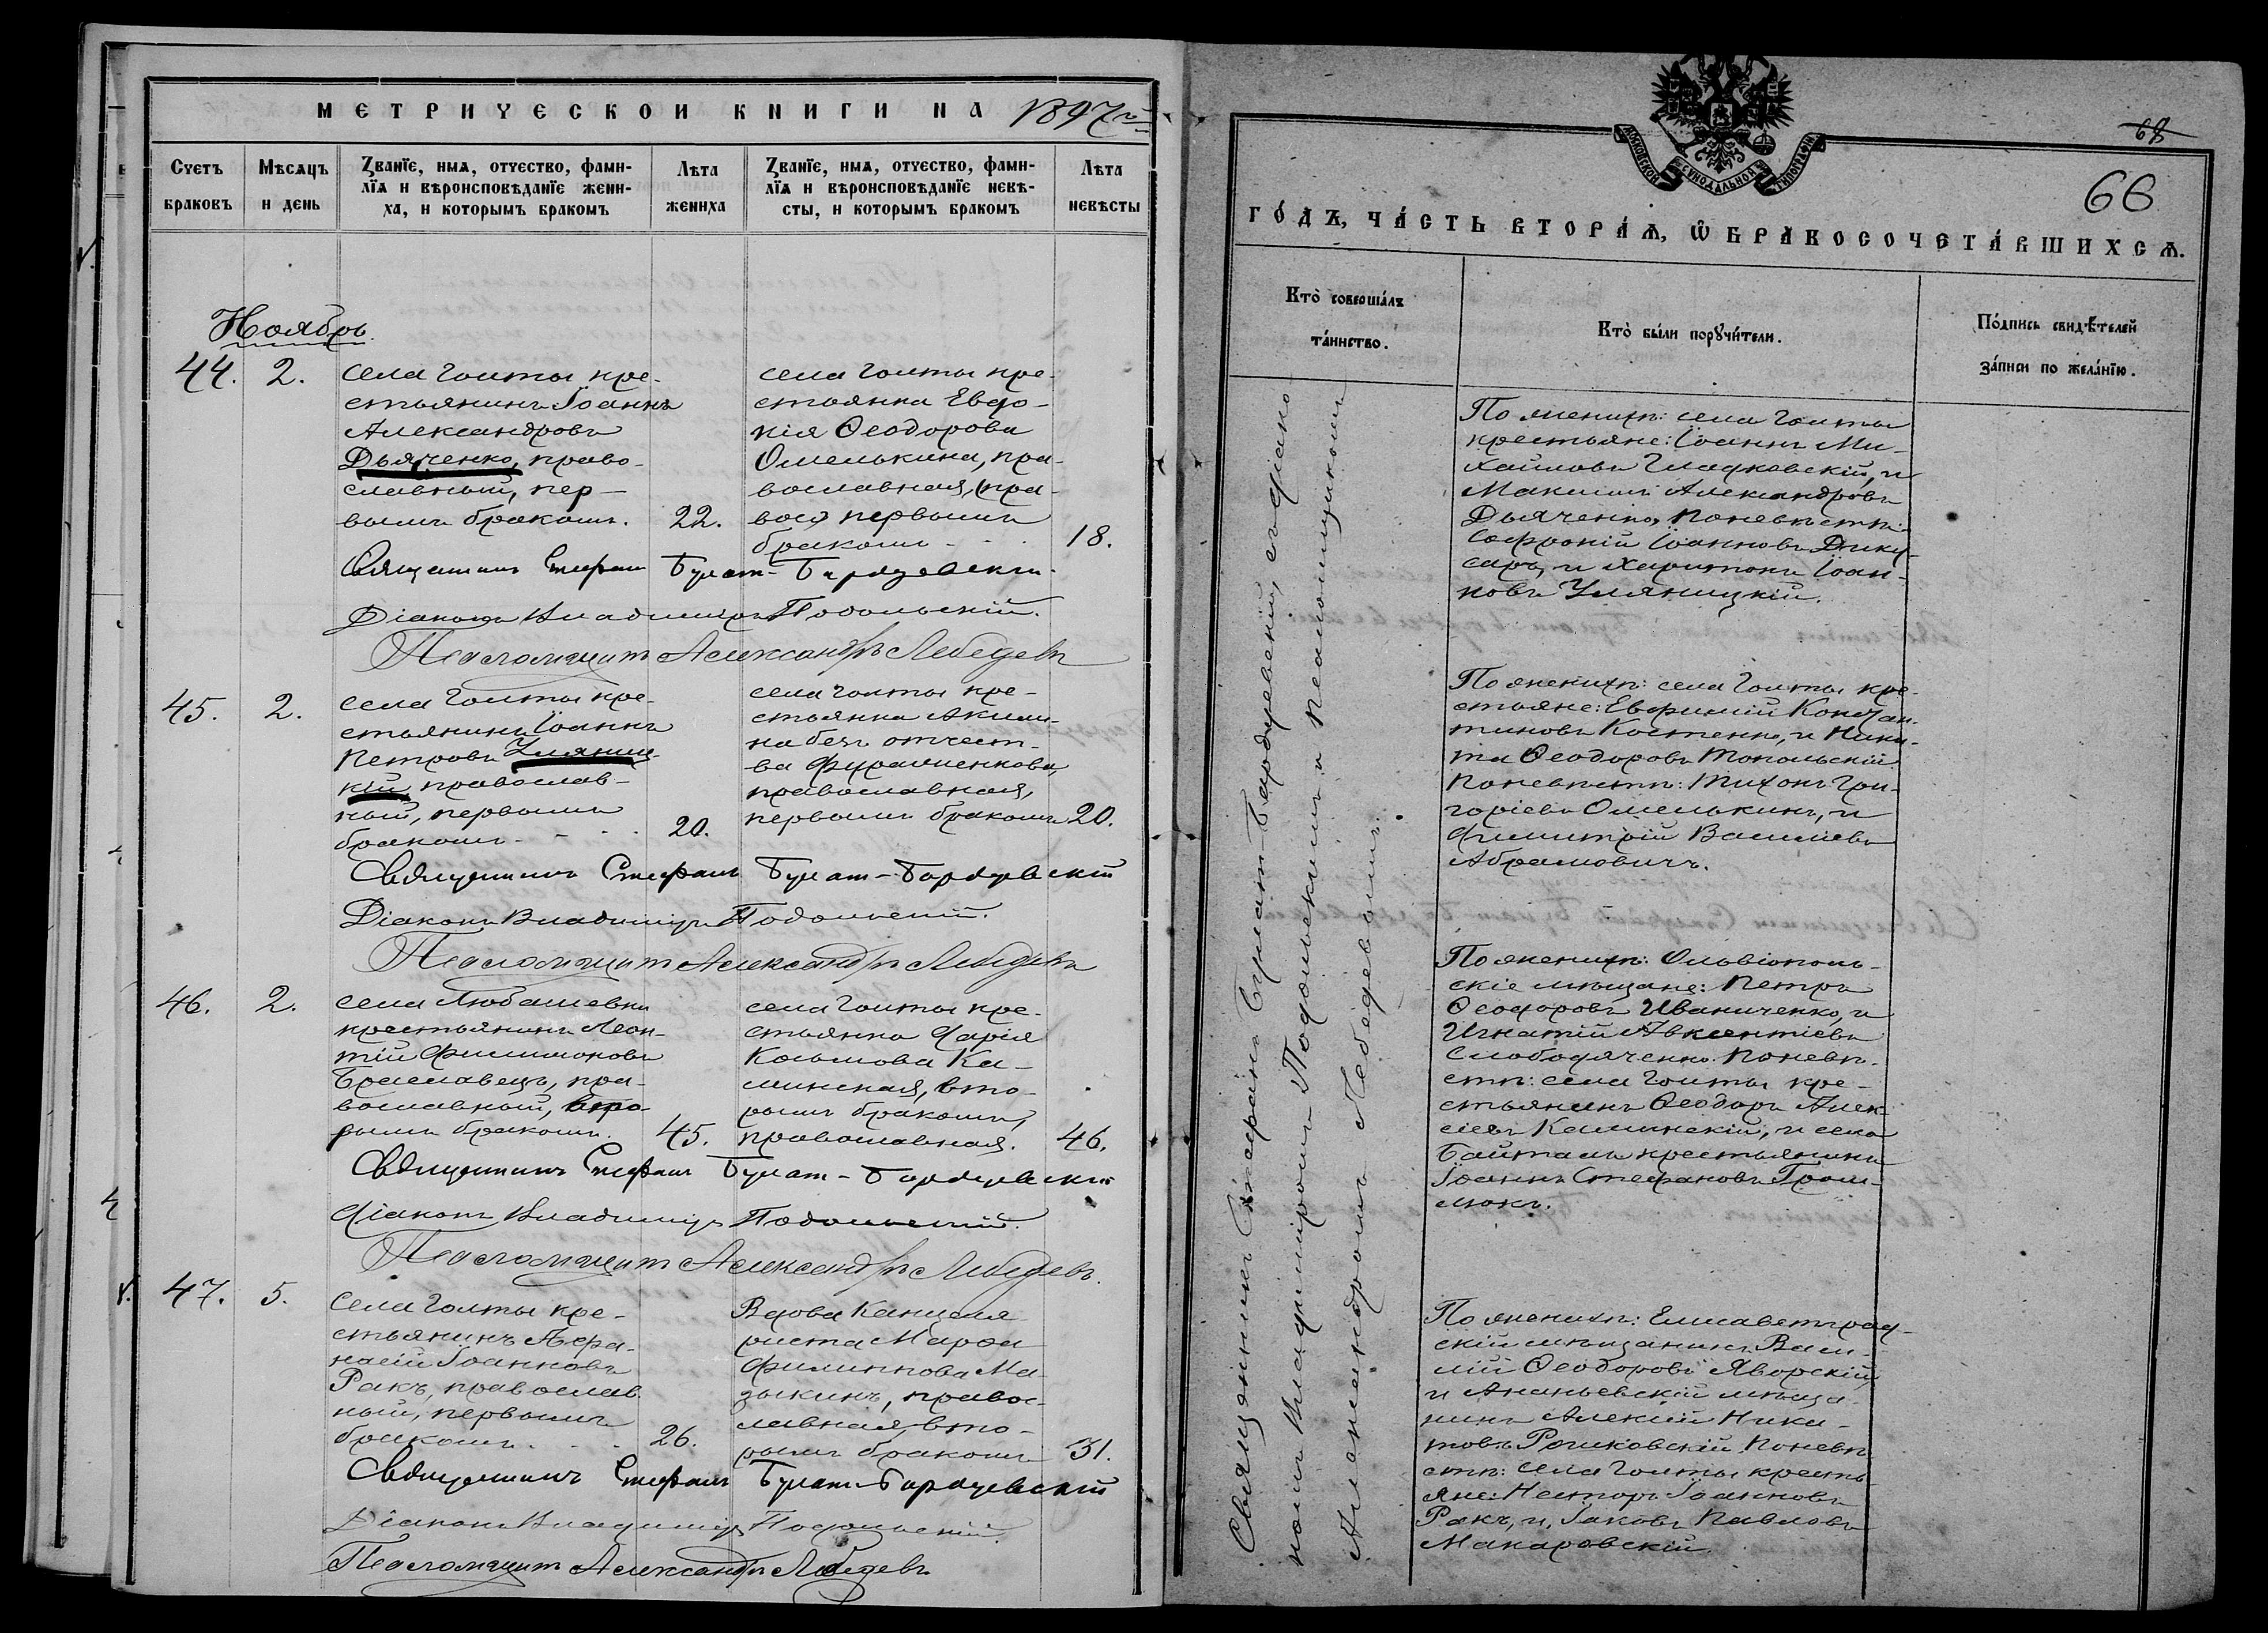 МЕТРИЧЕСКОЙ КНИГИ НА 1897й
Счетъ браковъ
Мѣсяцъ и день
Званїе, имя, отчество, фами-
лїя и вѣроисповѣданїе жени-
ха, и которымъ бракомъ
Лѣта жениха
Званїе, имя, отчество, фами-
лїя и вѣроисповѣданїе невѣ-
сты, и которымъ бракомъ
Лѣта невѣсты
Ноябрь
44.
2.
села Голты кре-
стьянинъ Іоаннъ
Александровъ
Дьяченко, право-
славный, пер-
вымъ бракомъ.
22.
села Голты кре-
стьянка Евдо-
кія Ѳеодорова
Омелькина, пра-
вославная, (пра-
вос) первымъ
бракомъ
18.
Священникъ Стефанъ Булат-Бардзевскій
Діаконъ Владиміръ Подольскій.
Псаломщикъ Александръ Лебедевъ
45.
2.
села Голты кре-
стьянинъ Іоаннъ
Петровъ Уляниц-
кій, православ-
ный, первымъ
бракомъ
20.
села Голты кре-
стьянка Акили-
на безъ отчест-
ва
православная,
первымъ бракомъ
20.
Священникъ Стефанъ Булат-Бардзевскій
Діаконъ Владиміръ Подольскій.
Псаломщикъ Александръ Лебедевъ
46.
2.
села Любашевки
крестьянинъ Леон-
тій Филимоновъ
Браславецъ, пра-
вославный, вто-
рымъ бракомъ.
45.
села Голты кре-
стьянка Дарія
Косьмова Ка-
минская, вто-
рымъ бракомъ,
православная.
46.
Священникъ Стефанъ Булат-Бардзевскій
Діаконъ Владиміръ Подольскій.
Псаломщикъ Александръ Лебедевъ.
47.
5.
Села Голты кре-
стьянинъ Аѳа-
насій Іоанновъ
Ракъ, православ-
ный, первымъ
бракомъ.
26.
Вдова Канцеля-
риста Марѳа
Филиппова Ма-
зыкинъ, правос-
лавная, вто-
рымъ бракомъ
31.
Священникъ Стефанъ Булат-Бардзевскій
Діаконъ Владиміръ Подольскій.
Псаломщикъ Александръ Лебедевъ
МОСКОВСКОЙ СУНОДАЛЬНОЙ ТИПОГРАФІИ
68
66
ГО́ДЪ, ЧА́СТЬ ВТОРА́Я, Ѿ БРАКОСОЧЕТА́ВШИХСЯ.
Кто̀ соверша́лъ
та́инство.
Кто̀ бы́ли поручи́тели.
По́дпись свидѣ́телей
за́писи по жела́нїю.
Священникъ Стефанъ Булат-Бардзевскій, съ діако-
номъ Владиміромъ Подольскимъ и псаломщикомъ
Александромъ Лебедевымъ.
По женихѣ: села Голты
крестьяне: Іоаннъ Ми-
хайловъ Гладковскій, и
Максимъ Александровъ
Дьяченко, по невѣстѣ:
Софроній Іоанновъ Дику-
саръ, и Харитонъ Іоан-
новъ Уляницкій.
По женихѣ: села Голты кре-
стьяне: Евфимій Констан-
тиновъ Костенко, и Ники-
та Ѳеодоровъ Топольскій
по невѣстѣ: Тихонъ Гри-
горіевъ Омелькинъ, и
Димитрій Василіевъ
Абрамовичъ.
По женихѣ: Ольвіополь-
скіе мѣщане: Петръ
Ѳеодоровъ Иваниченко, и
Игнатій Авксентіевъ
Слободяченко. По невѣ-
стѣ: села Голты кре-
стьянинъ Ѳеодоръ Алек-
сіевъ Каминскій, и села
Байталъ крестьянинъ
Іоаннъ Стефановъ Гром-
люкъ.
По женихѣ: Елисаветград-
скій мѣщанинъ Васи-
лій Ѳеодоровъ Яворскій,
и Ананьевскій мѣща-
нинъ Алексій Ники-
товъ по невѣ-
стѣ: села Голты кресть-
яне: Несторъ Іоанновъ
Ракъ, и, Іаковъ Павловъ
Макаровскій.